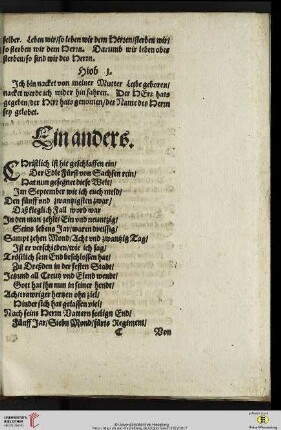 selber. Leben wir/so leben wir dem Herren/sterben wir/
so sterben wir dem Herrn. Darumb wir leben oder
sterben/so sind wir des Herrn.
Hiob 1.
Ich bin nacket von meiner Mutter Leibe geboren/
nacket werde ich wider hin fahren. Der HErr hats
gegeben/der Herr hats genomen/der Name des Herrn
sey gelobet.
Ein anders.
CHristlich ist hie geschlaffen ein/
Der Edle Fürst von Sachsen rein/
Hat nun gesegnet diese Welt/
Im September wie ich euch meld/
Den fünff vnd zwantzigsten zwar/
Das kleglich Fall word war
In dem man zehlet Ein vnd neuntzig/
Seins lebens Jar/waren dreissig/
Sampt zehen Mond/Acht vnd zwantzig Tag/
Ist er verschieden/wie ich sag/
Tröstlich sein End beschlossen hat/
Zu Dreßden in der festen Stadt/
Jetzund all Creutz vnd Elend wendt/
Gott hat ihn nun in seiner hendt/
Ach trawriger hertzen ohn ziel/
Hinder sich hat gelassen viel/
Nach seins Herrn Vattern seelign End/
Fünff Jar/Sieben Mond/fürts Regiment/
C Von